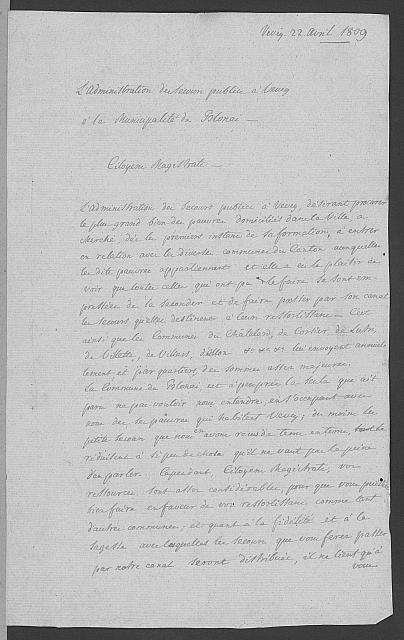 Vevey. 22 Avril 1809
L'Administration des Secours publics à Vevey
à la Municipalité de Blonai —
Citoyens Magistrats —
L'Administration des Secours publics à Vevey, désirant procurer
le plus grand bien des pauvres domiciliés dans la Ville, a
cherché, dès les premiers instans de sa formation, à entrer
en relation avec les diverses communes du Canton auxquelles
les dits pauvres appartiennent et elle a eu le plaisir de
voir que toutes celles qui ont pu le faire se sont em-
pressées de la seconder et de faire passer par son canal
les secours qu'elles destinent à leurs ressortissans — C'est
ainsi que les Communes du Châtelard, de Corsier de Lutri,
de Villette, de Villars, d'Ollon &c &c &c lui envoyent annuel-
lement et par quartiers, des sommes assez majeures.
La Commune de Blonai, est à peu près la seule que ait
paru ne pas vouloir nous entendre, en s'occupant avec
nous des ses pauvres qui habitent Vevey; du moins les
petits secours que nous en avons reçus de tems en tems, se
réduisent à si peu de chose qu'il ne vaut pas la peine
d'en parler. Cependant, Citoyens Magistrats, vos
ressources sont assez considérables, pour que vous puissiez
bien faire en faveur de vos ressortissans, comme tant
d'autres communes; et quant à la fidélité et à la
sagesse avec lesquelles les secours que vous ferez passer
par notre canal seront distribués, il ne tient qu'à
vous